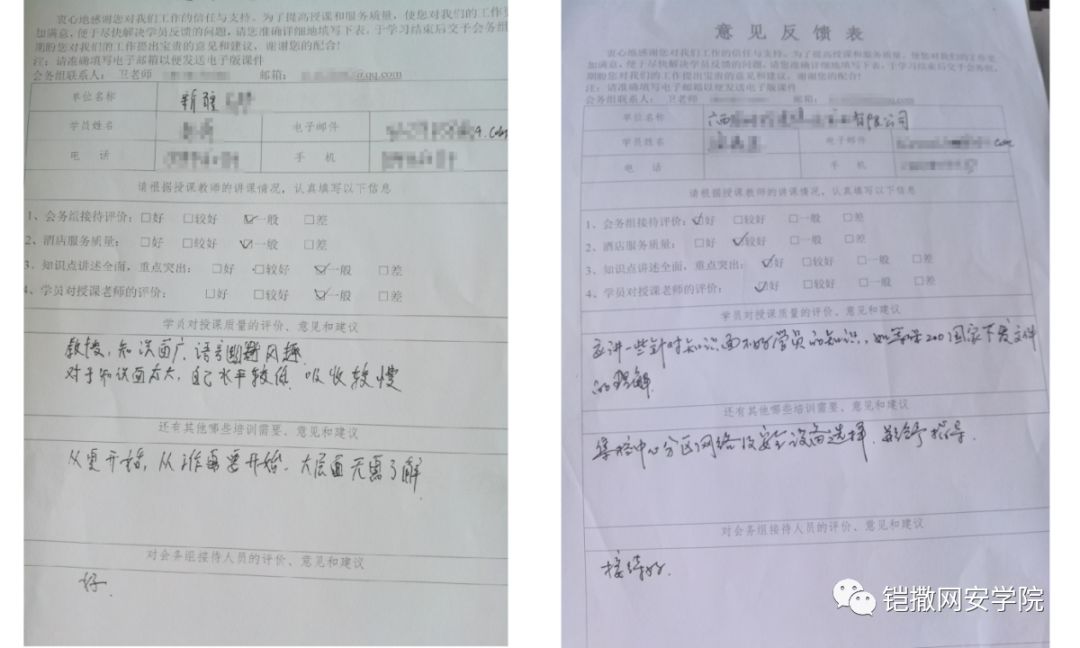 衷心地感谢您对我们工作的信任与支持。为了提高授课和服务质量,使您对我们的工作更
加满意,便于尽快解决学员反馈的问题,请您准确详细地填写下表,于学习结束后交予会务组
期盼您对我们的工作提出宝贵的意见和建议,谢谢您的配合!
注:请准确填写电子邮箱以便发送电子版课件
会务组联系人: 卫老师 邮箱: @qq.com
单位名称
学员姓名 电子邮件
电 话 手 机
请根据授课教师的讲课情况,认真填写以下信息
1、会务组接待评价:□好 □较好 ☑一般 □差
2、酒店服务质量: □好 □较好 ☑一般 □差
3、知识点讲述全面,重点突出: □好 □较好 ☑一般 □差
4、学员对授课老师的评价: □好 □较好 ☑一般 □差
学员对授课质量的评价、意见和建议
教授,知识面广,语言 风趣
对于知识面太大,自己水平较低,吸收较慢
还有其他哪些培训需要、意见和建议
开始,从 需要开始,大层面无需了解
对会务组接待人员的评价、意见和建议
好.
意见反馈表
衷心地感谢您对我们工作的信任与支持。为了提高授课和服务质量,使您对我们的工作更
加满意,便于尽快解决学员反馈的问题,请您准确详细地填写下表,于学习结束后交予会务组,
期盼您对我们的工作提出宝贵的意见和建议,谢谢您的配合!
注:请准确填写电子邮箱以便发送电子版课件
会务组联系人: 卫老师 邮箱:
单位名称 广西 有限公司
学员姓名 电子邮件 com
电 话 手 机
请根据授课教师的讲课情况,认真填写以下信息
1、会务组接待评价:☑好 □较好 □一般 □差
2、酒店服务质量: □好 ☑较好 □一般 □差
3、知识点讲述全面,重点突出: ☑好 □较好 □一般 □差
4、学员对授课老师的评价: ☑好 □较好 □一般 □差
学员对授课质量的评价、意见和建议
应讲一些针对知识面不好学员的知识,如等保2.0国家下发文件
的理解.
还有其他哪些培训需要、意见和建议
集控中心分区网络及安全设备选择, 给予指导.
对会务组接待人员的评价、意见和建议
接待好.
铠撒网安学院